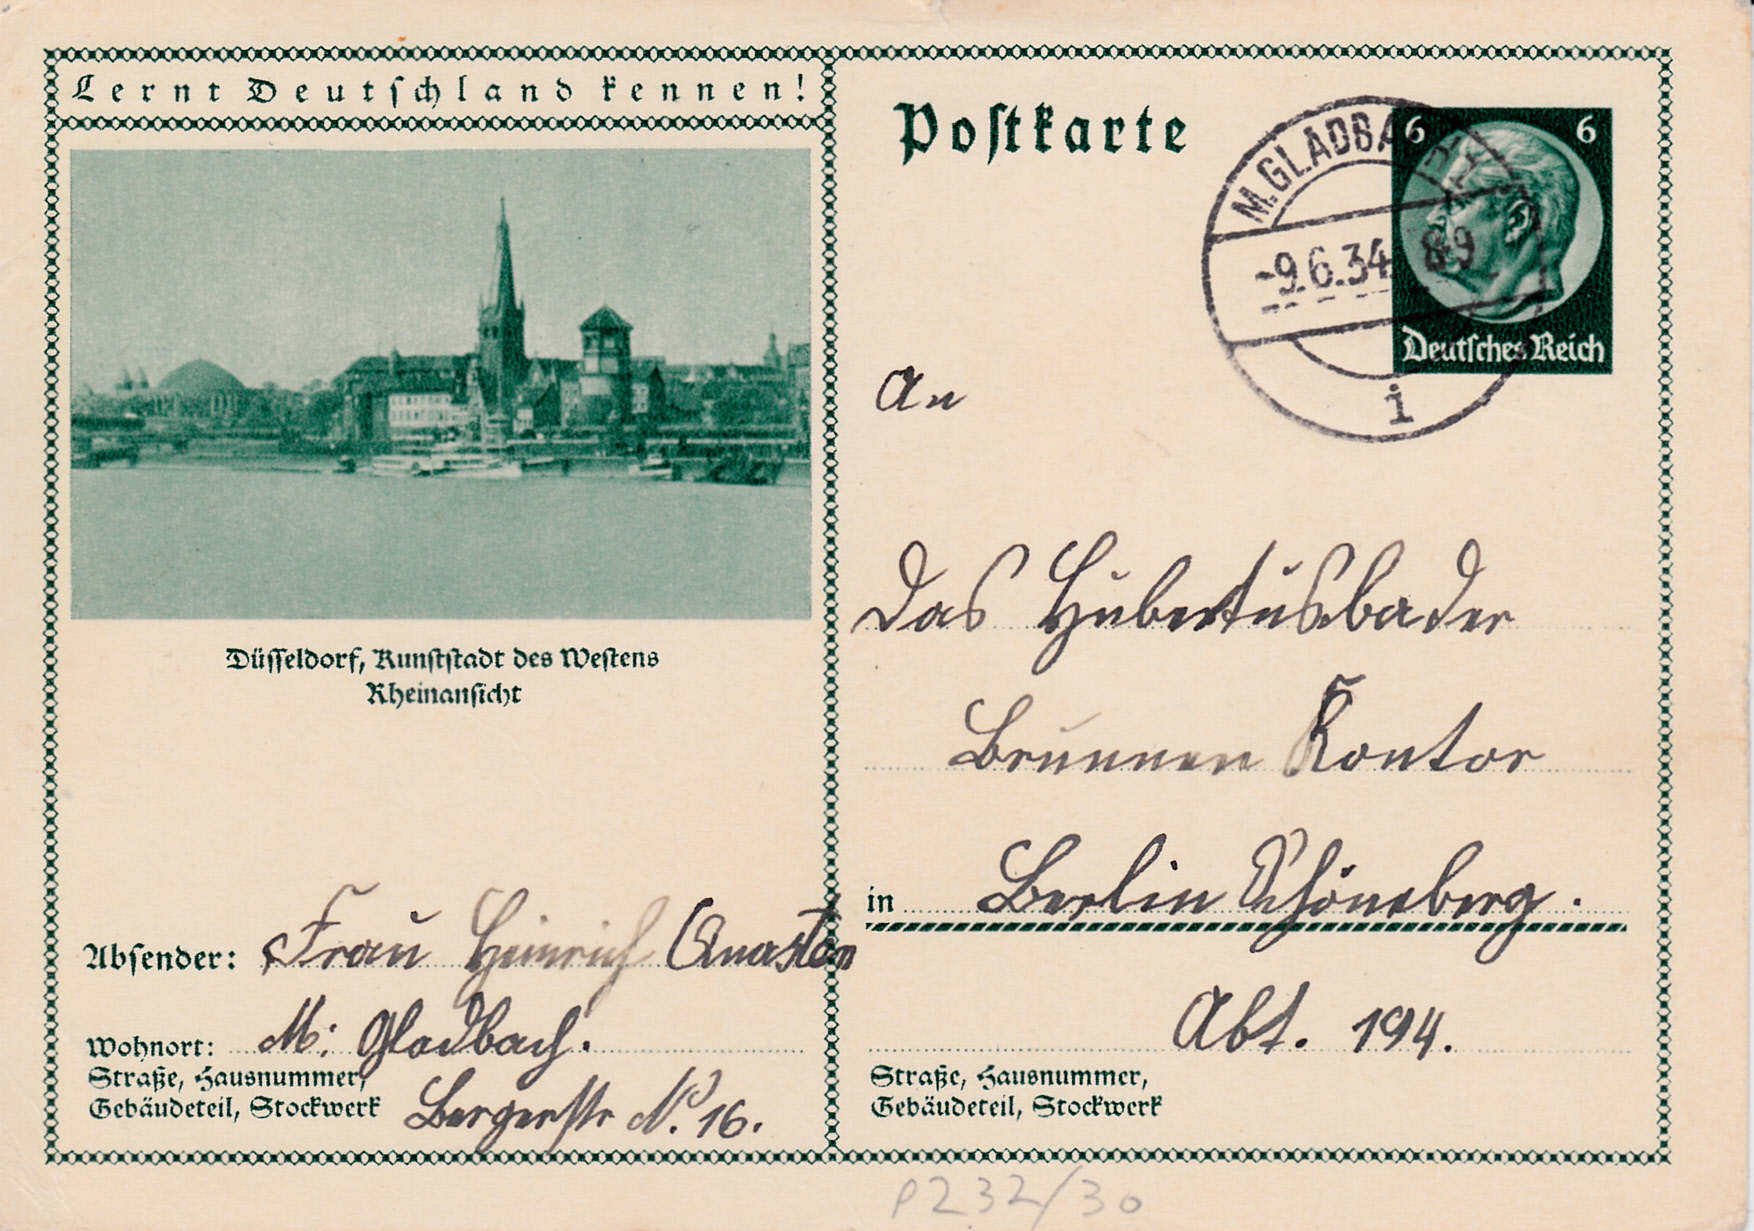 Lernt Deutschland kennen!
Düsseldorf, Kunststadt des Westens
Rheinansicht
Absender: Frau Heinrich
Wohnort: M: Gladbach.
Straße, Hausnummer,
Gebäudeteil, Stockwerk
Bergerstr No. 16.
Postkarte
6 6
Deutsches Reich
M. GLADBACH
-9.6.34. 8-9
i
An
Das Hubertusbader
Brunnen Kontor
in Berlin Schöneberg.
Abt. 194.
Straße, Hausnummer,
Gebäudeteil, Stockwerk
P232/30